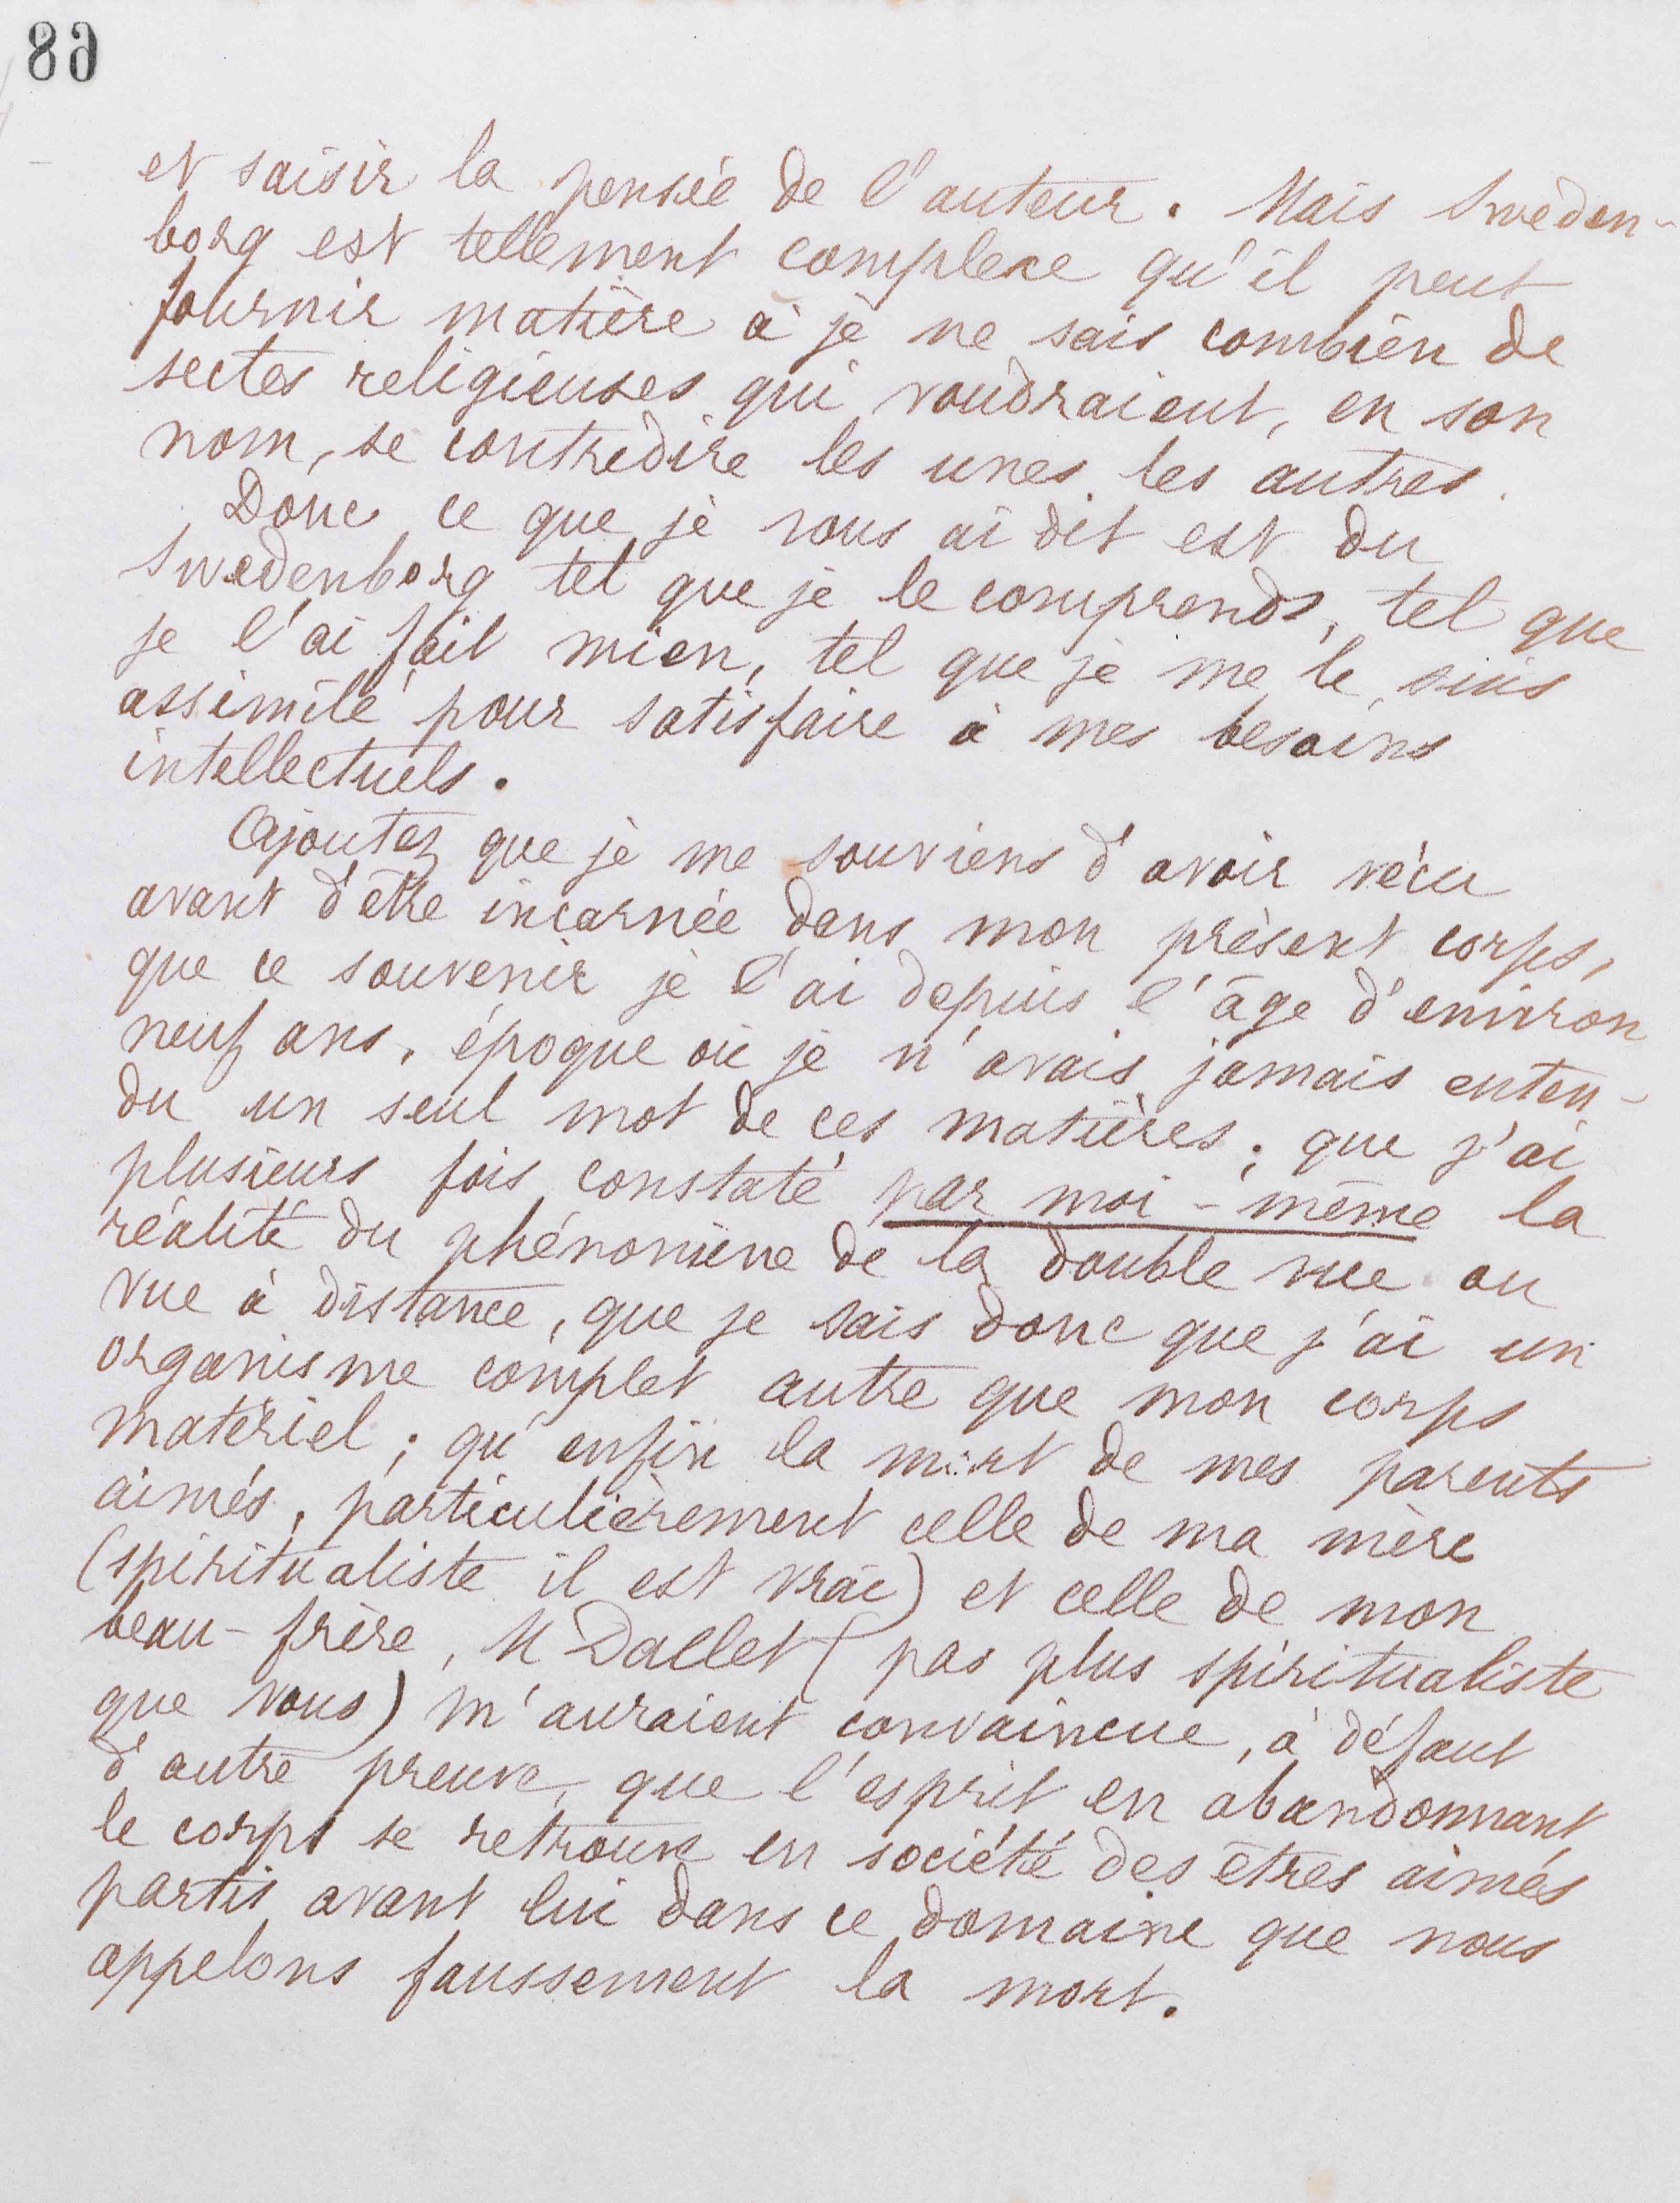 89
et saisir la pensée de l'auteur. Mais Sweden-
borg est tellement complexe qu'il peut
fournir matière à je ne sais combien de
sectes religieuses qui voudraient, en son
nom, se contredire les unes les autres.
Donc ce que je vous ai dit est du
Swedenborg tel que je le comprends, tel que
je l'ai fait mien, tel que je me le suis
assimilé pour satisfaire à mes besoins
intellectuels.
Ajoutez que je me souviens d'avoir vécu
avant d'être incarnée dans mon présent corps,
que ce souvenir je l'ai depuis l'âge d'environ
neuf ans, époque où je n'avais jamais enten-
du un seul mot de ces matières; que j'ai
plusieurs fois constaté par moi-même la
réalité du phénomène de la double vue ou
vue à distance, que je sais donc que j'ai un
organisme complet autre que mon corps
matériel; qu'enfin la mort de mes parents
aimés, particulièrement celle de ma mère
(spiritualiste il est vrai) et celle de mon
beau-frère, M Dallet (pas plus spiritualiste
que vous) m'auraient convaincue, à défaut
d'autre preuve, que l'esprit en abandonnant
le corps se retrouve en société des êtres aimés
partis avant lui dans ce domaine que nous
appelons faussement la mort.